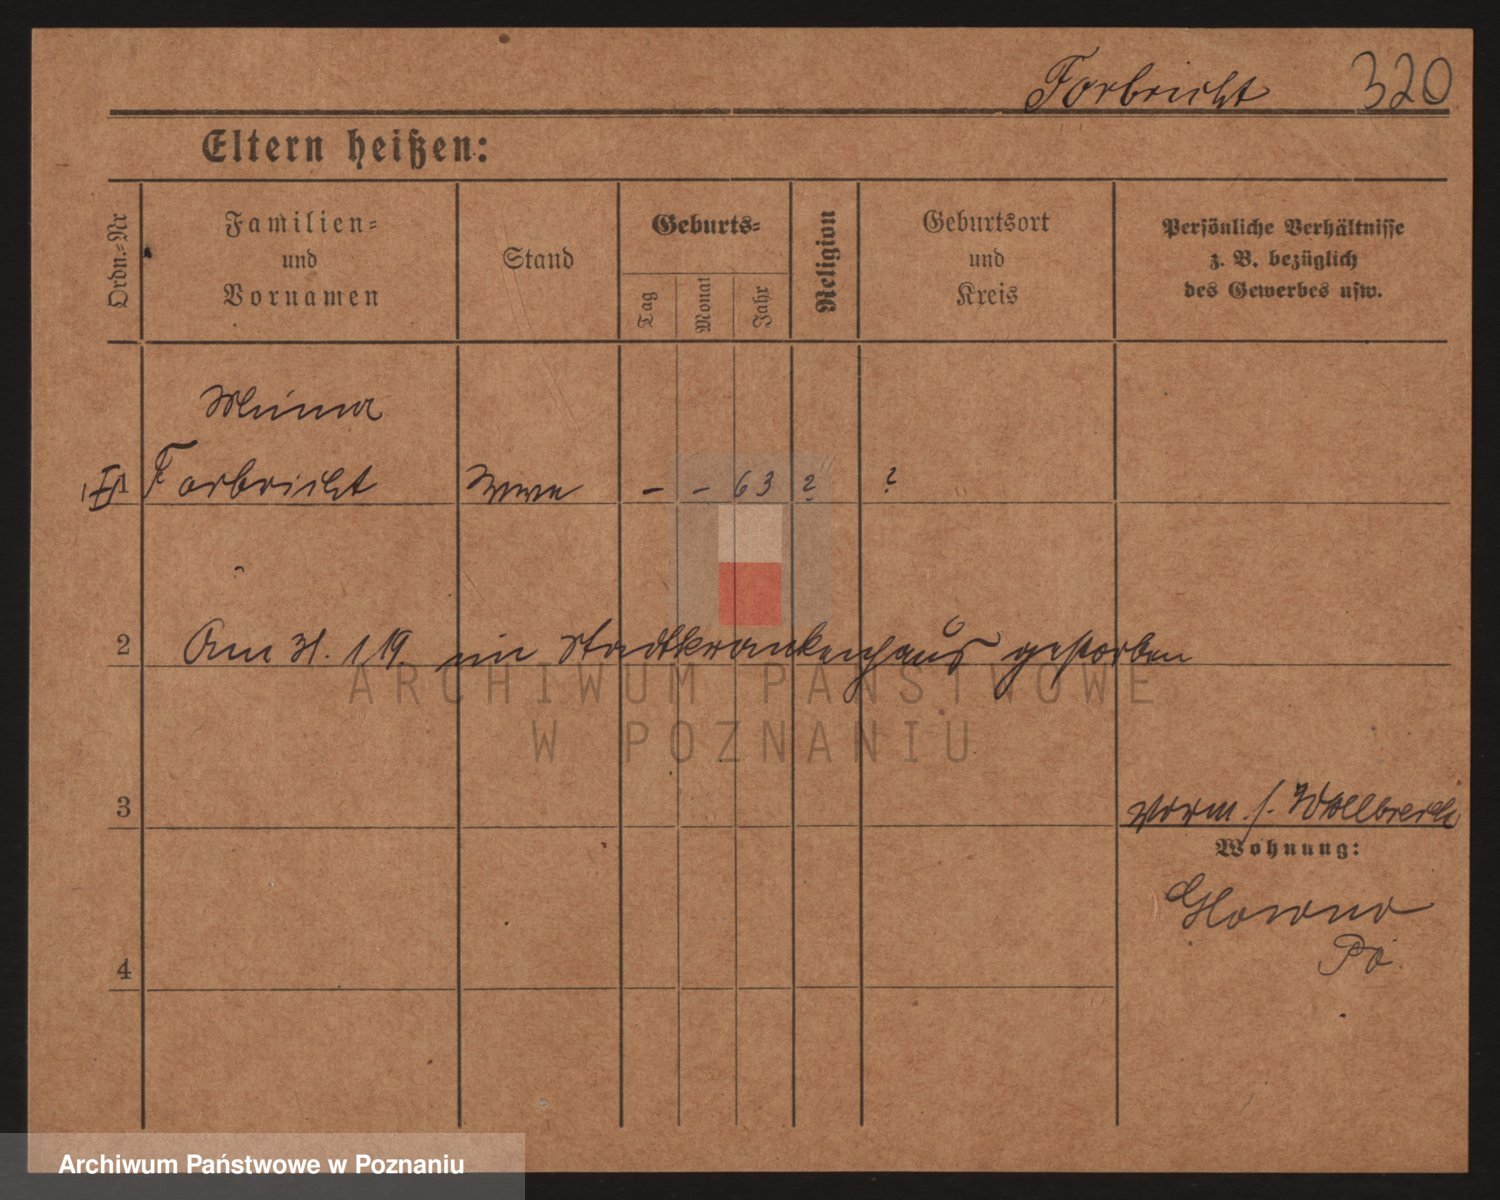 Forbricht 320
Eltern heißen:
Ordn.-Nr
Familien-
und
Vornamen
Stand
Geburts-
Tag
Monat
Jahr
Religion
Geburtsort
und
Kreis
Persönliche Verhältnisse
z. B. bezüglich
des Gewerbes usw.
Minna
1 Forbricht Wwe - - 63 ? ?
2 Am 31. 1. 19. im Stadtkrankenhaus gestorben
ARCHIWUM PAŃSTWOWE
W POZNANIU
3
Wohnung:
Glowno
Po.
4
Archiwum Państwowe w Poznaniu